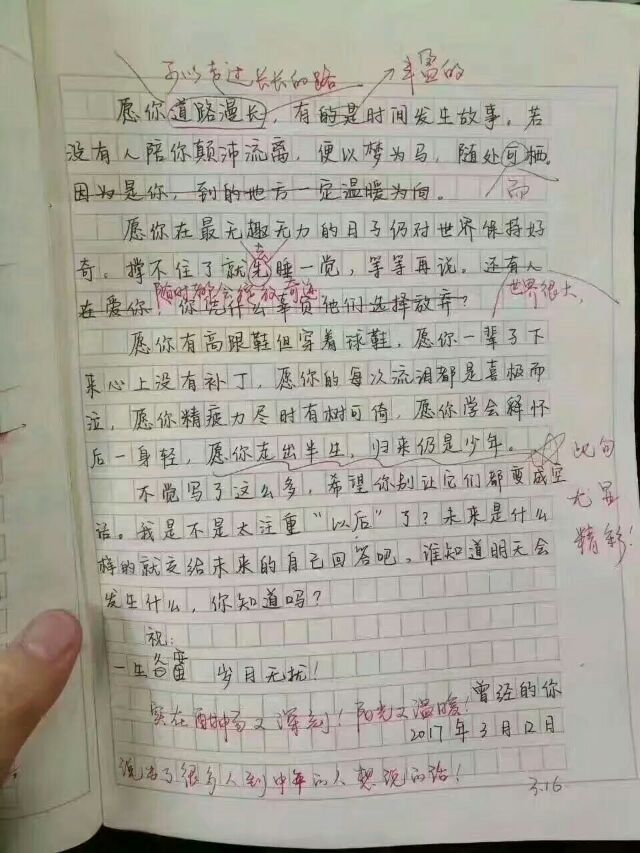 可以走过长长的路
丰盈的
愿你道路漫长，有的是时间发生故事。若
没有人陪你颠沛流离，便以梦为马，随处可栖。
因为是你，到的地方一定温暖为向。
而
愿你在最无趣无力的日子仍对世界保持好
去
奇。撑不住了就先睡一觉，等等再说。还有人
随时都会绽放奇迹
世界很大，
在爱你，你凭什么辜负他们选择放弃？
愿你有高跟鞋但穿着球鞋，愿你一辈子下
来心上没有补丁，愿你的每次流泪都是喜极而
泣，愿你精疲力尽时有树可倚，愿你学会释怀
后一身轻，愿你走出半生，归来仍是少年。
此句
尤显
精彩！
不觉写了这么多，希望你别让它们都变成空
话。我是不是太注重“以后”了？未来是什么
样的就交给未来的自己回答吧，谁知道明天会
发生什么，你知道吗？
祝：
一生 岁月无扰！
曾经的你
实在 又深刻！阳光又温暖！
2017年3月12日
说出了很多人到中年的人想说的话！
3.16